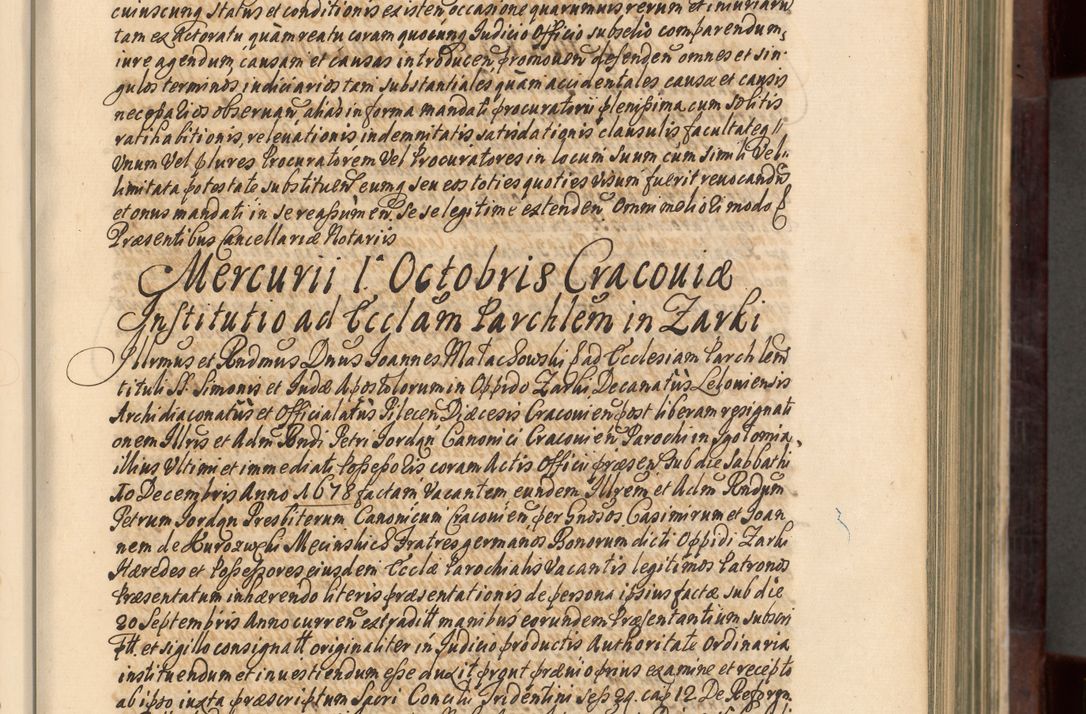 cuiuscunq Status et conditionis existen occasione quarumuis rerum et iniuriaru
tam ex Actoratu quàm reatu coram quocunq Iudicio Officio subselio comparendum,
iure agendum, causam et causas introducen, promouen defenden omnes et sin
gulos terminos iudiciarios tam substantiales quàm accidentales causæ et causis
necessarios obseruan, alias in forma mandati procuratorii plenissima cum solitis
ratihabitionis, releuationis indemnitatis satisdationis clausulis facultateq
Vnum Vel plures Procuratorem Vel Procuratores in locum suum cum simili Vel
limitata potestate substituen eumq seu eos toties quoties visum fuerit reuocandi
et onus mandati in se reassumen. Se se legitime extenden Omni meliori modo
Præsentibus Cancellariæ Notariis
Mercurii 1ª Octobris Cracouiæ
Institutio ad Ecclam Parchlem in Zarki
Illrmus et Rndmus Dnus Ioannes Małachowski ad Ecclesiam Parchlem
tituli SS. Simonis et Iudæ Apostolorum in Oppido Zarki Decanatus Leloviensis
Archidiaconatus et Officialatus Pilecen Diæcesis Cracouien post liberam resignati
onem Illris et Adm Rndi Petri Iordan Canonici Cracouien Parochi in Igołomia,
illius Vltimi et immediati Possessoris coram Actis Officii præsen Sub die Sabbathi
10 Decembris Anno 1678 factam Vacantem eundem Illrem et Adm Rndum
Petrum Iordan Presbiterum Canonicum Cracouien per Gnosos Casimirum et Ioan
nem de Kurozweki Mecinskies Fratres germanos Bonorum dicti Oppidi Zarki
Hæredes et Possessores eiusdem Ecclæ Parochialis Vacantis legitimos Patronos
Præsentatum inhærendo literis præsentationis de persona ipsius factæ sub die
20 Septembris Anno curren extraditt manibus eorundem Præsentantium subscri
ptt. et sigillo consignatt originaliter in Iudicio productis Authoritate Ordinaria
instituendum et inuestiendum esse duxit prout præuio prius examine et recepto
ab ipso iuxta præscriptum Sacri Concilii Tridentini sess 24. cap 12 De Reform